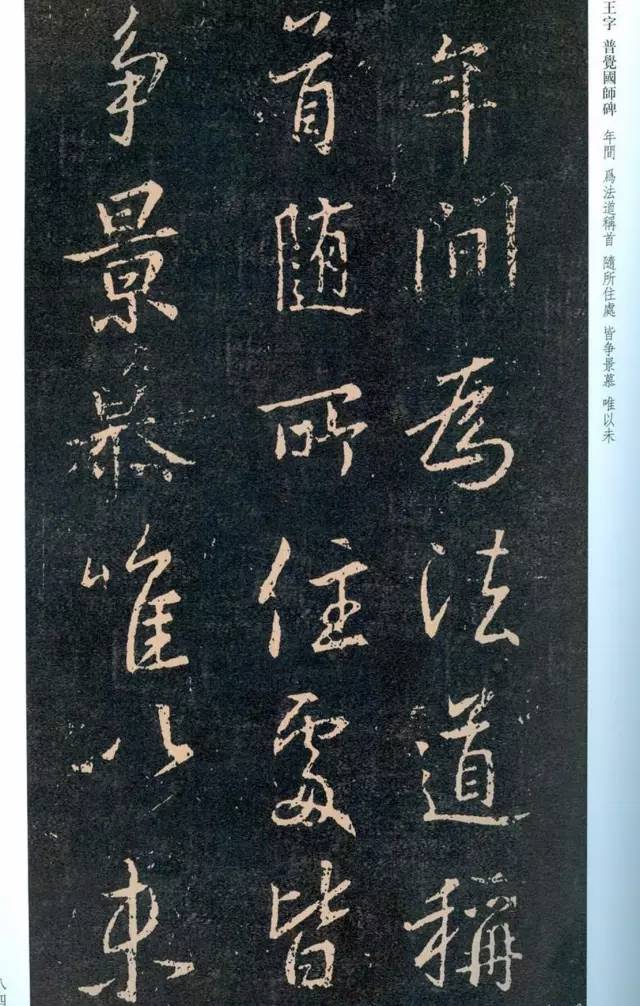 王字 普覺國師碑 年間 爲法道稱首 隨所住處 皆争景慕 唯以未
年間爲法道稱
首随所住處皆
争景慕唯以未
八四